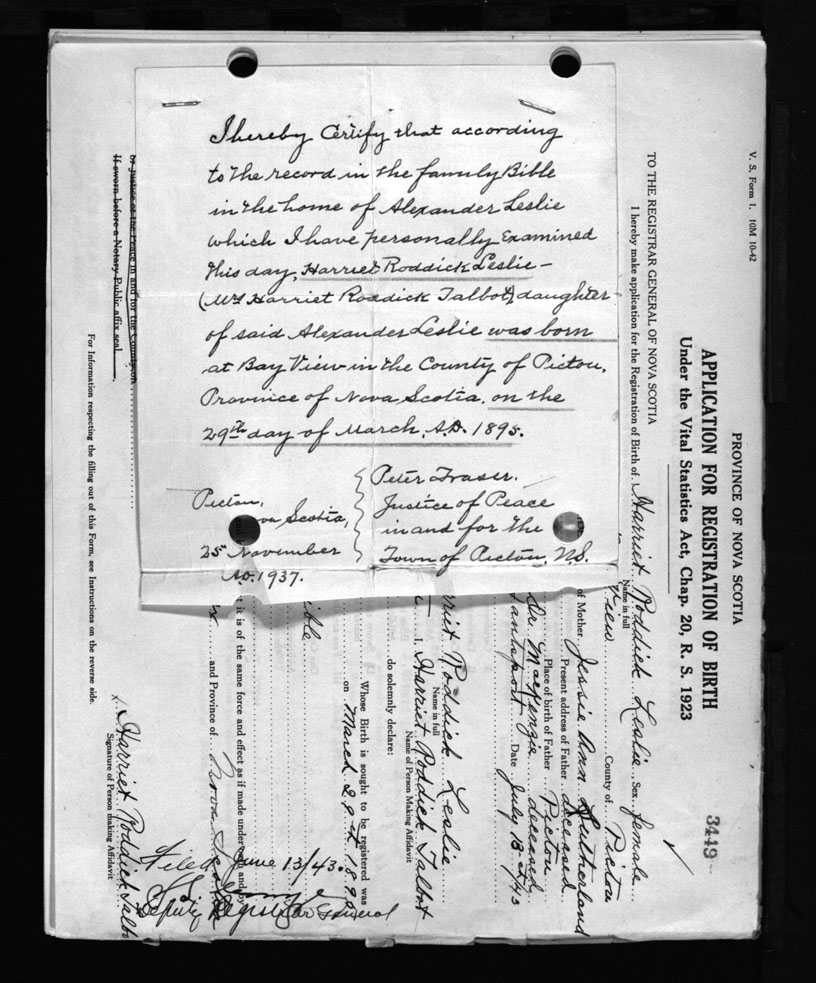 I hereby Certify that according
to the record in the family Bible
in the home of Alexander Leslie
which I have personally Examined
this day, Harriet Roddick Leslie –
(Mrs Harriet Roddick Talbot) daughter
of said Alexander Leslie was born
at Bay View in the County of Pictou,
Province of Nova Scotia, on the
29th day of March, A.D. 1895.
Peter Fraser.
Justice of Peace
in and for the
Town of Pictou, N.S.
Pictou,
Scotia,
25 November
A.D. 1937.
V. S. Form 1. 10M 10-42
PROVINCE OF NOVA SCOTIA
APPLICATION FOR REGISTRATION OF BIRTH
Under the Vital Statistics Act, Chap. 20, R. S. 1923
3449
TO THE REGISTRAR GENERAL OF NOVA SCOTIA
I hereby make application for the Registration of Birth of Harriet Roddick Leslie Sex female
Name in full
View County of Pictou
of Mother Jessie Ann Sutherland
Present address of Father deceased
Place of birth of Father Pictou
Dr. MacKenzie deceased
Hantsport Date July 13
Roddick Leslie
Name in full
I, Harriet Roddick Talbot
Name of Person Making Affidavit
do solemnly declare:
Whose Birth is sought to be registered was
on March 29th
it is of the same force and effect as if made under oath and by
and Province of Nova Scotia
Filed June 13/43.
Deputy Registrar General
or Justice of the Peace in and for the County of
If sworn before a Notary Public affix seal.
For Information respecting the filling out of this Form, see Instructions on the reverse side.
x Harriet Roddick Talbot
Signature of Person making Affidavit